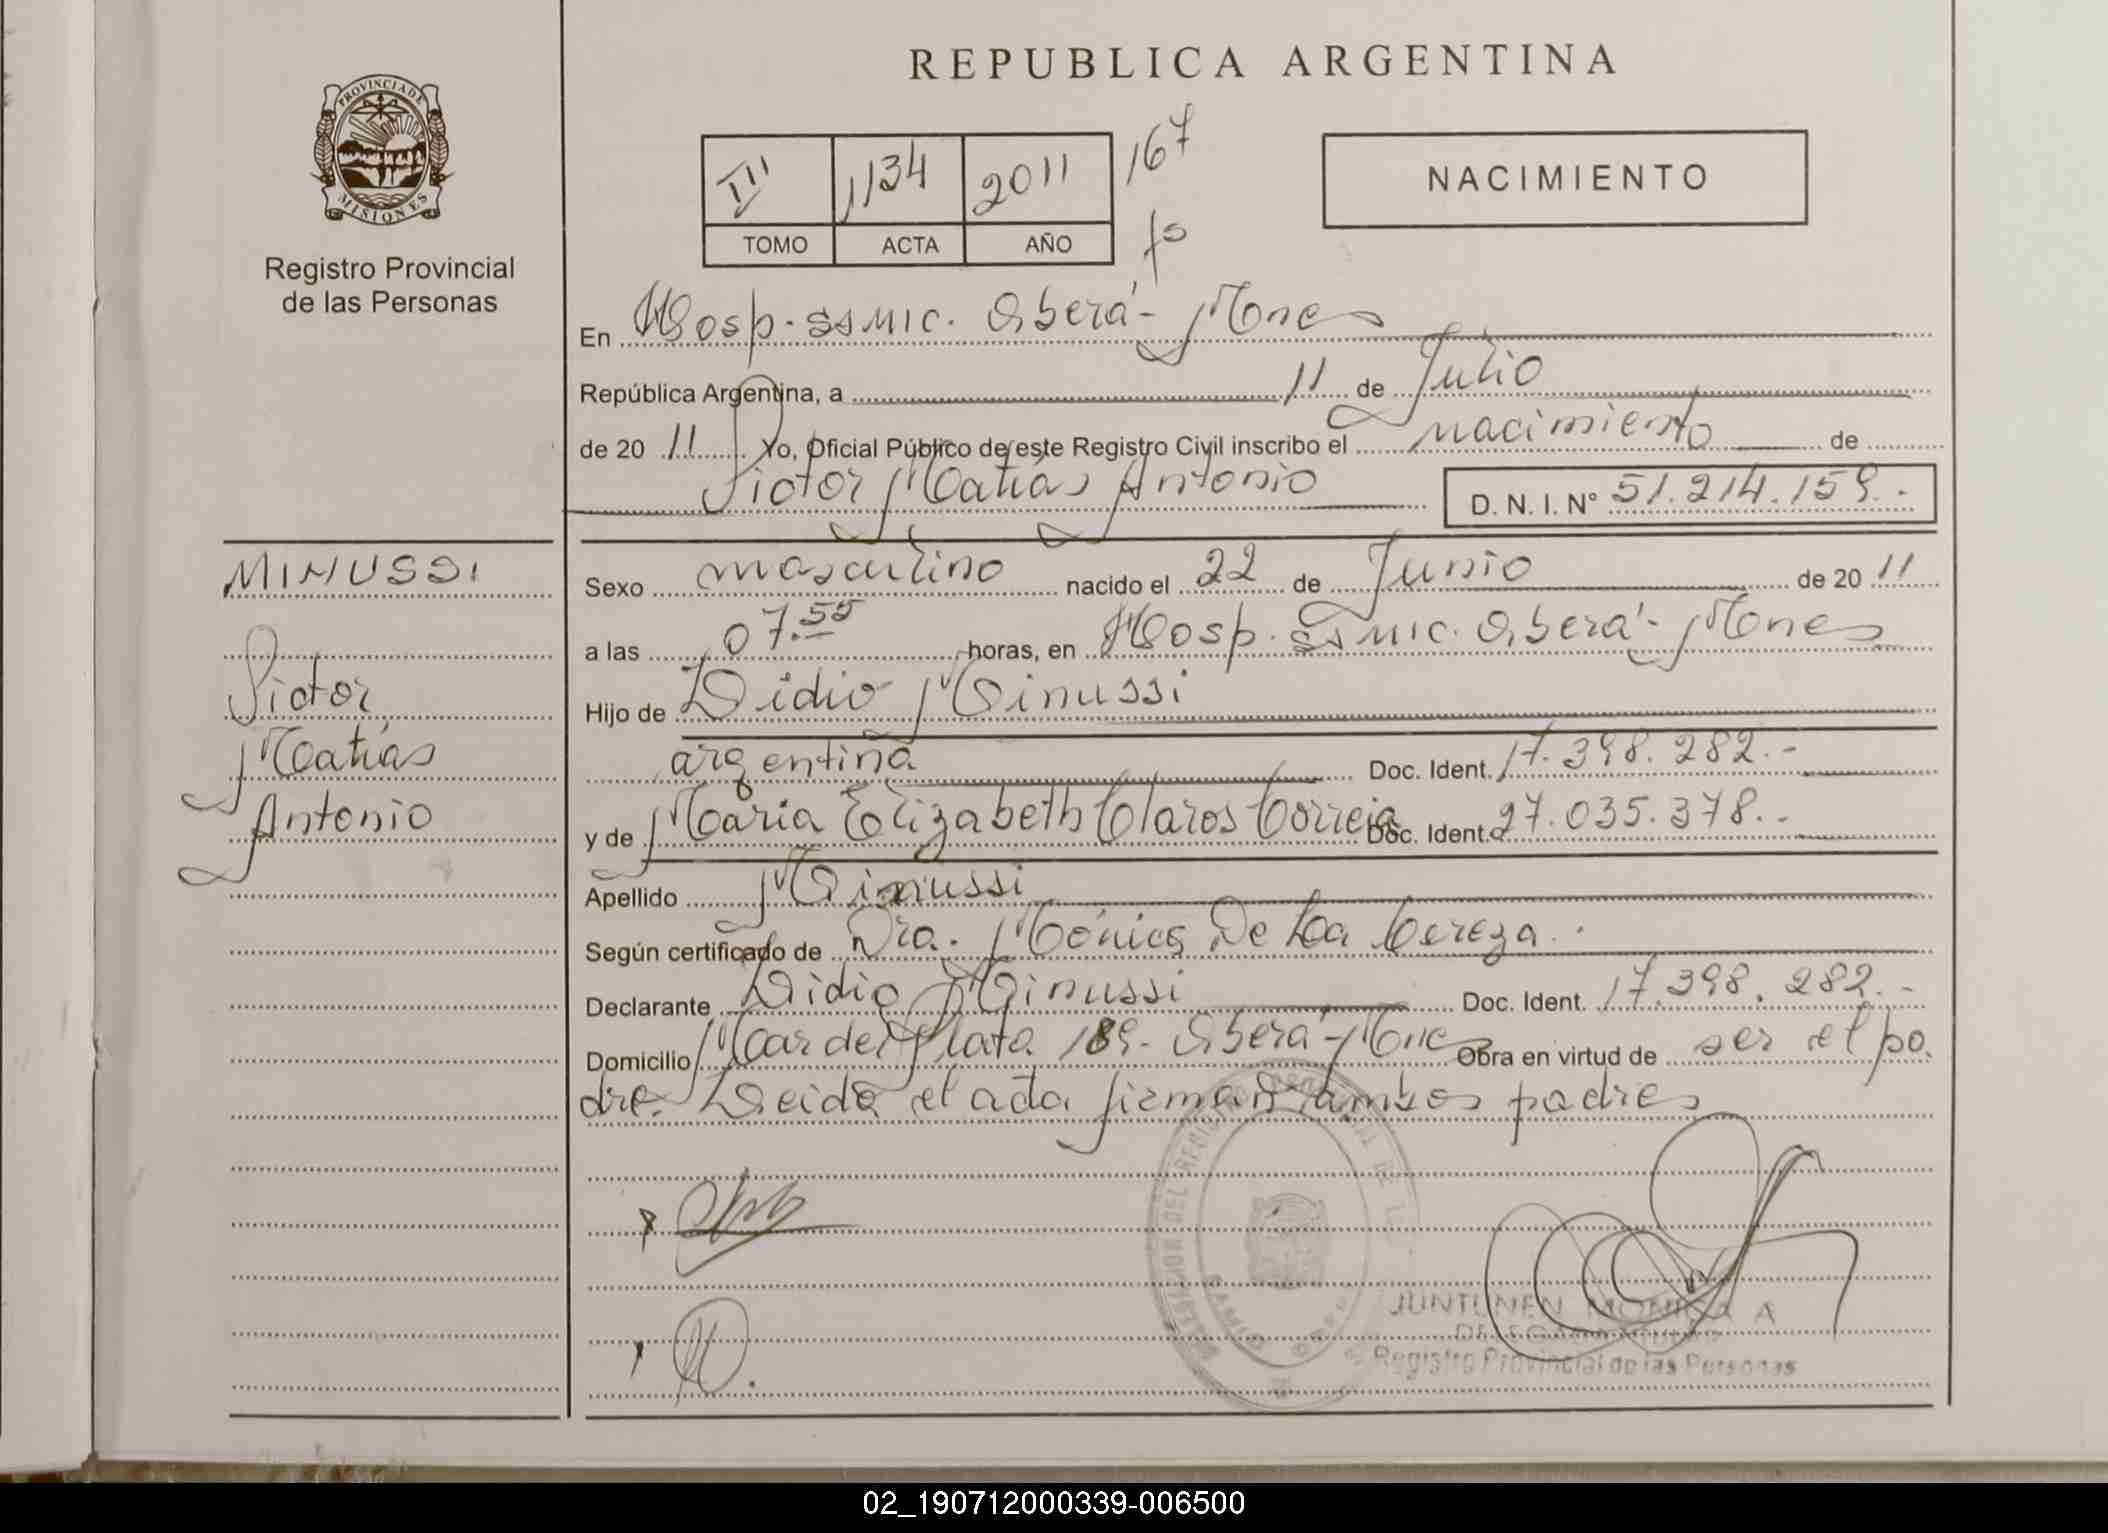 REPUBLICA ARGENTINA
PROVINCIA DE
MISIONES
Registro Provincial
de las Personas
III 1134 2011 167
TOMO ACTA AÑO fo
NACIMIENTO
En Hosp. SSMIC. Oberá - Mnes
República Argentina, a 11 de Julio
de 20 11 Yo, Oficial Público de este Registro Civil inscribo el nacimiento de
Victor Matías Antonio D. N. I. Nº 51.214.159.-
MINUSSI
Victor
Matías
Antonio
Sexo masculino nacido el 22 de Junio de 20 11
a las 07.55 horas, en Hosp. SSMIC. Oberá - Mnes
Hijo de Lidio Minussi
argentina Doc. Ident. 17.398.282.-
y de María Elizabeth Claros Correia Doc. Ident. 27.035.378.-
Apellido Minussi
Según certificado de Dra. Mónica De La Cereza.
Declarante Lidio Minussi Doc. Ident. 17.398.282.-
Domicilio Mar del Plata 189 - Oberá - Mnes Obra en virtud de ser el pa
dre. Leida el acta firman ambos padres
JUNTUNEN MONICA A
Registro Provincial de las Personas
02_190712000339-006500